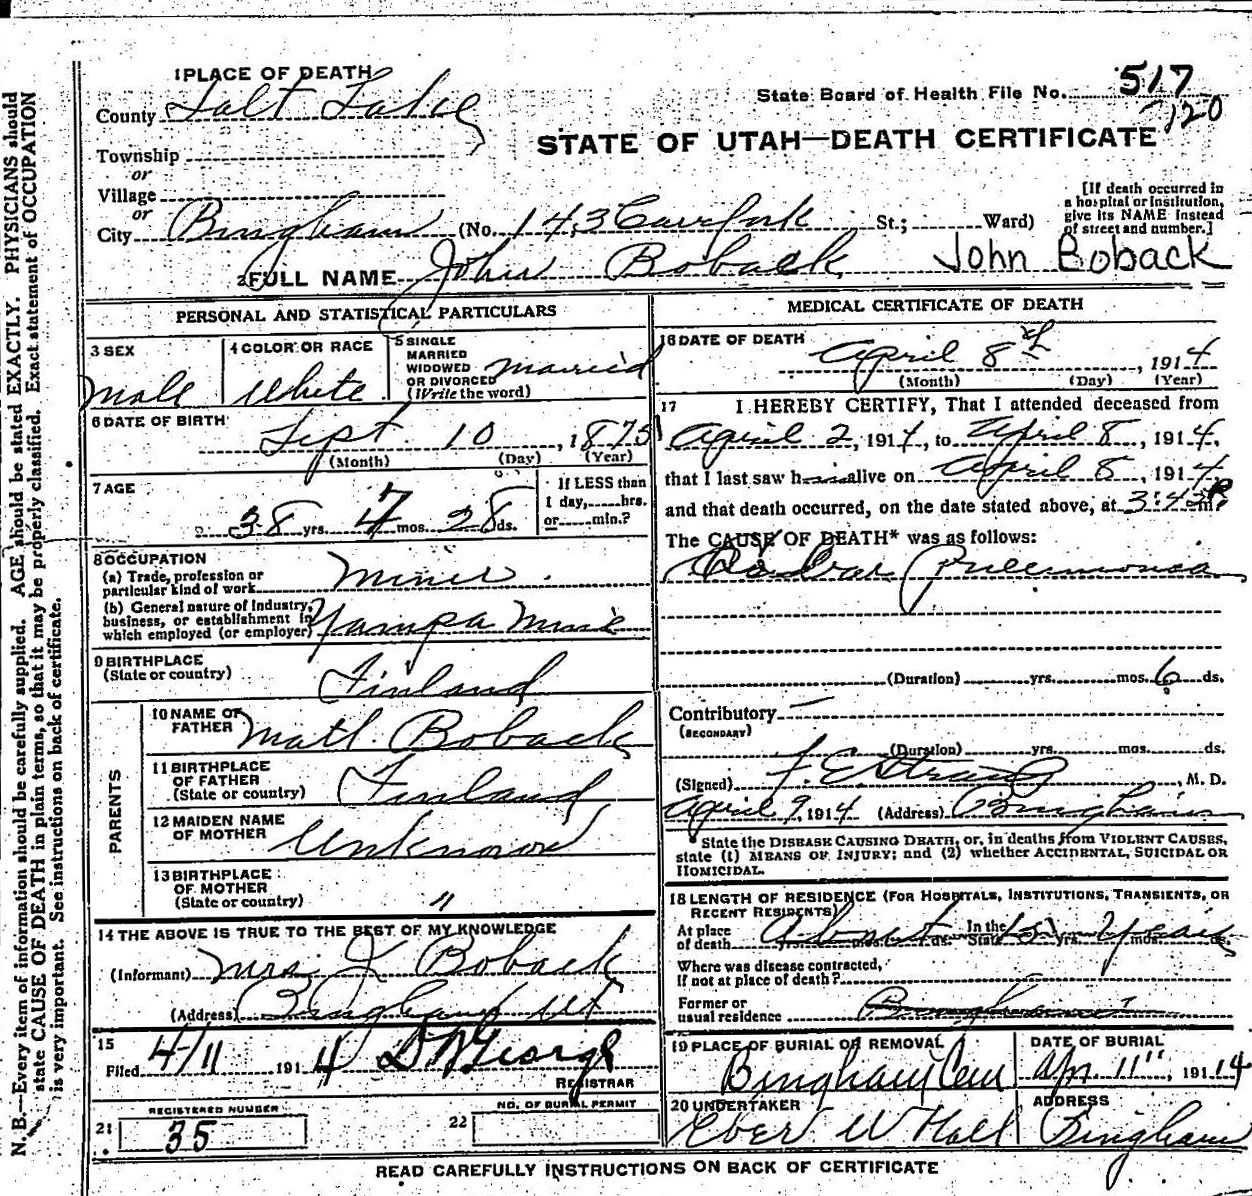 N. B.—Every item of information should be carefully supplied. AGE should be stated EXACTLY. PHYSICIANS should
state CAUSE OF DEATH in plain terms, so that it may be properly classified. Exact statement of OCCUPATION
is very important. See instructions on back of certificate.
1 PLACE OF DEATH
County Salt Lake
State Board of Health File No. 517
120
STATE OF UTAH—DEATH CERTIFICATE
Township
or
Village
or
City Bingham (No. 143 Carrfork St.; Ward)
[If death occurred in
a hospital or institution,
give its NAME instead
of street and number.]
2 FULL NAME John Boback John Boback
PERSONAL AND STATISTICAL PARTICULARS
3 SEX
Male
4 COLOR OR RACE
White
5 SINGLE
MARRIED
WIDOWED
OR DIVORCED
(Write the word)
Married
6 DATE OF BIRTH
Sept. 10, 1875
(Month) (Day) (Year)
7 AGE
38 yrs. 7 mos. 28 ds.
If LESS than
1 day, hrs.
or min.?
8 OCCUPATION
(a) Trade, profession or
particular kind of work Miner
(b) General nature of industry,
business, or establishment in
which employed (or employer) Yampa Mine
9 BIRTHPLACE
(State or country)
Finland
PARENTS
10 NAME OF
FATHER Matt. Boback
11 BIRTHPLACE
OF FATHER
(State or country) Finland
12 MAIDEN NAME
OF MOTHER Unknown
13 BIRTHPLACE
OF MOTHER
(State or country) "
14 THE ABOVE IS TRUE TO THE BEST OF MY KNOWLEDGE
(Informant) Mrs. J Boback
(Address) Bingham Ut
15
Filed 4/11 1914 George
REGISTRAR
REGISTERED NUMBER
21 35
NO. OF BURIAL PERMIT
22
MEDICAL CERTIFICATE OF DEATH
16 DATE OF DEATH
April 8th, 1914
(Month) (Day) (Year)
17 I HEREBY CERTIFY, That I attended deceased from
April 2, 1914, to April 8, 1914,
that I last saw him alive on April 8, 1914,
and that death occurred, on the date stated above, at 3:45 P m.
The CAUSE OF DEATH* was as follows:
Lobar Pneumonia
(Duration) yrs. mos. 6 ds.
Contributory
(SECONDARY)
(Duration) yrs. mos. ds.
(Signed) F. E. Straup M. D.
April 9, 1914 (Address) Bingham
* State the DISEASE CAUSING DEATH, or, in deaths from VIOLENT CAUSES,
state (1) MEANS OF INJURY; and (2) whether ACCIDENTAL, SUICIDAL OR
HOMICIDAL.
18 LENGTH OF RESIDENCE (FOR HOSPITALS, INSTITUTIONS, TRANSIENTS, OR
RECENT RESIDENTS)
At place
of death About yrs. mos. ds. In the
State 15 yrs. Years mos. ds.
Where was disease contracted,
if not at place of death?
Former or
usual residence Bingham
19 PLACE OF BURIAL OR REMOVAL
Bingham Cem
DATE OF BURIAL
Apr. 11", 1914
20 UNDERTAKER
Eber W Hall
ADDRESS
Bingham
READ CAREFULLY INSTRUCTIONS ON BACK OF CERTIFICATE